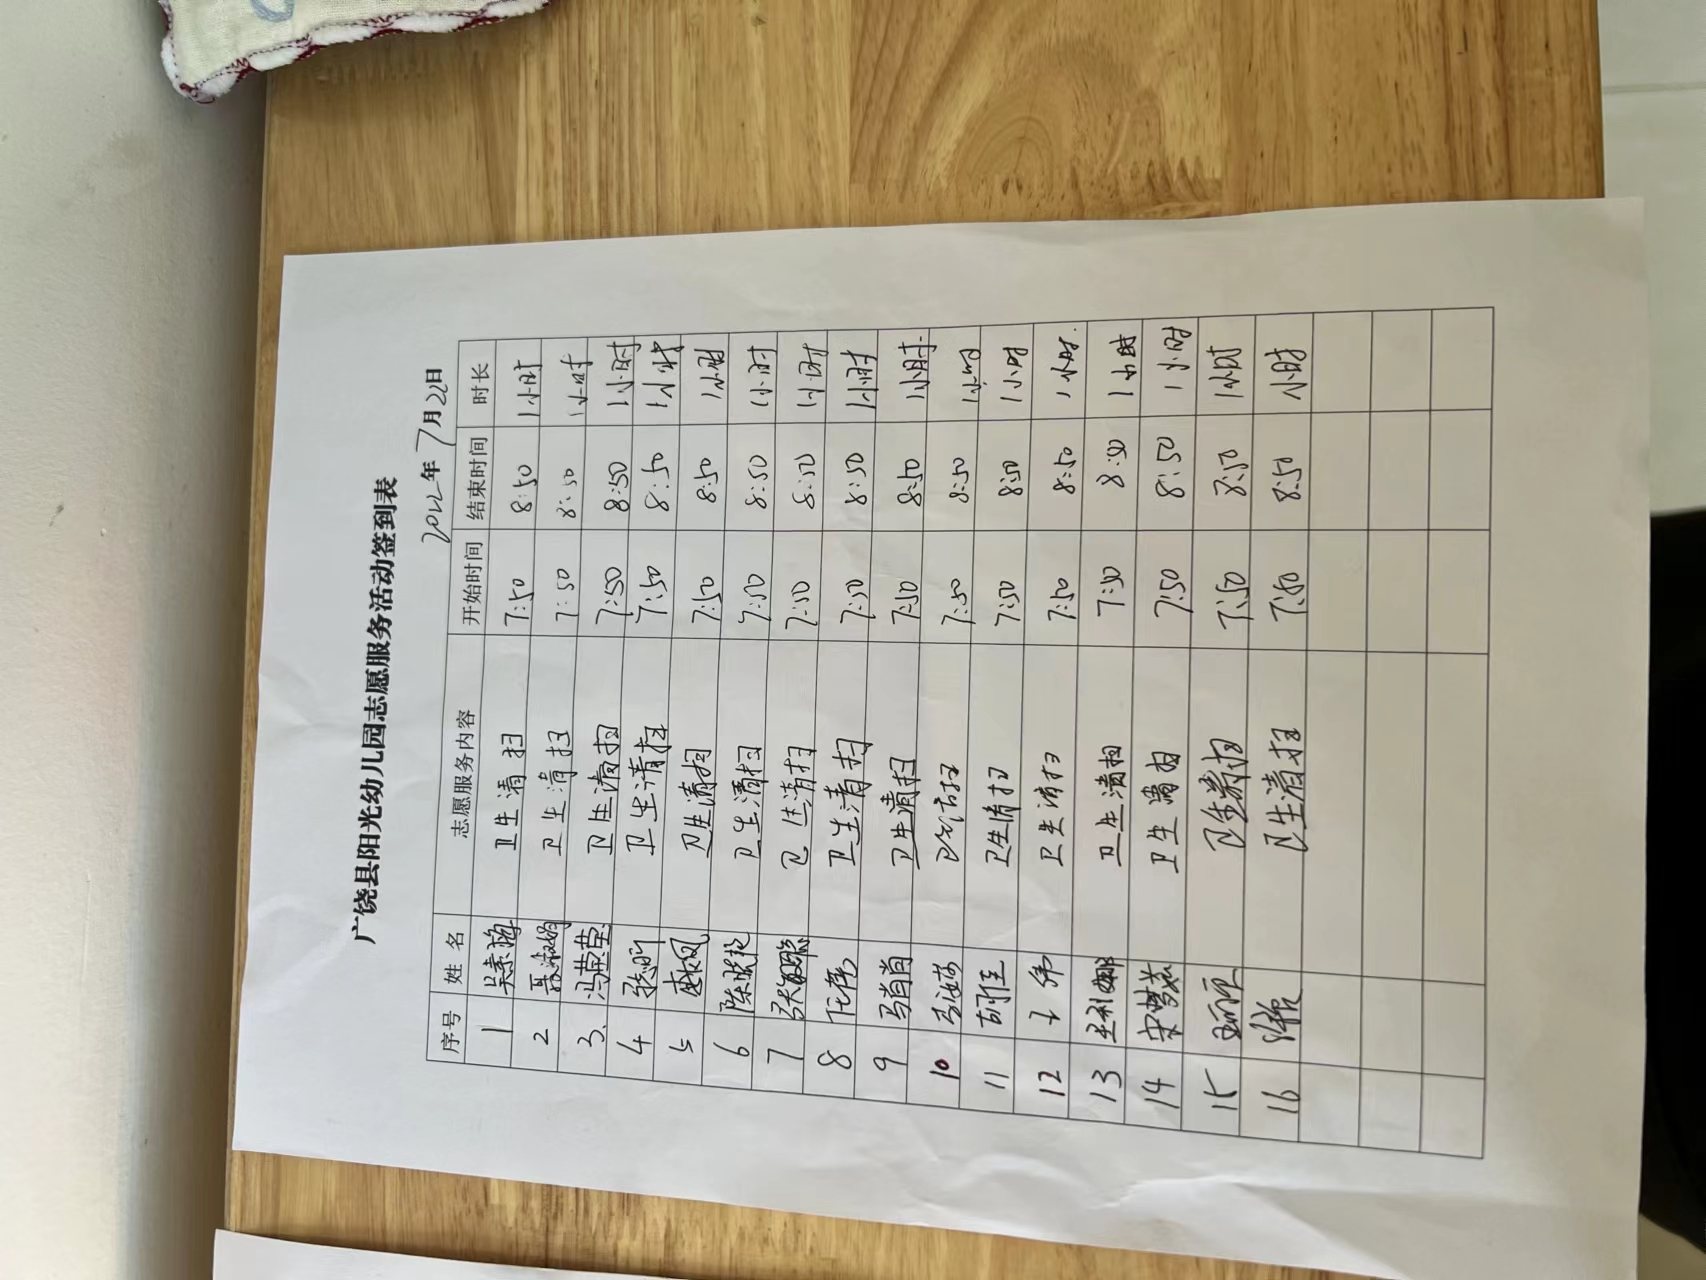 广饶县阳光幼儿园志愿服务活动签到表
2022年7月22日
序号 姓名 志愿服务内容 开始时间 结束时间 时长
1 吴素梅 卫生清扫 7:50 8:50 1小时
2 聂淑娟 卫生清扫 7:50 8:50 1小时
3 冯荣荣 卫生清扫 7:50 8:50 1小时
4 张昕 卫生清扫 7:50 8:50 1小时
5 卫生清扫 7:50 8:50 1小时
6 陈晓艳 卫生清扫 7:50 8:50 1小时
7 张聪聪 卫生清扫 7:50 8:50 1小时
8 卫生清扫 7:50 8:50 1小时
9 马肖肖 卫生清扫 7:50 8:50 1小时
10 卫生清扫 7:50 8:50 1小时
11 胡佳 卫生清扫 7:50 8:50 1小时
12 卫生清扫 7:50 8:50 1小时
13 卫生清扫 7:50 8:50 1小时
14 卫生清扫 7:50 8:50 1小时
15 卫生清扫 7:50 8:50 1小时
16 卫生清扫 7:50 8:50 1小时